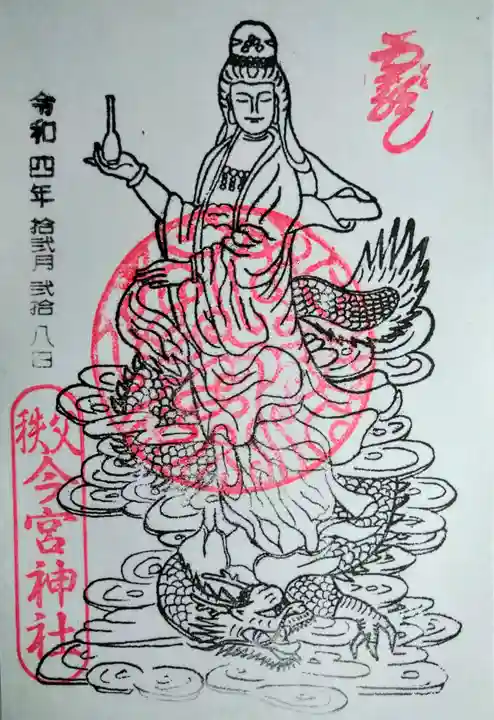 令和四年拾弐月弐拾八日
秩父
今宮神社